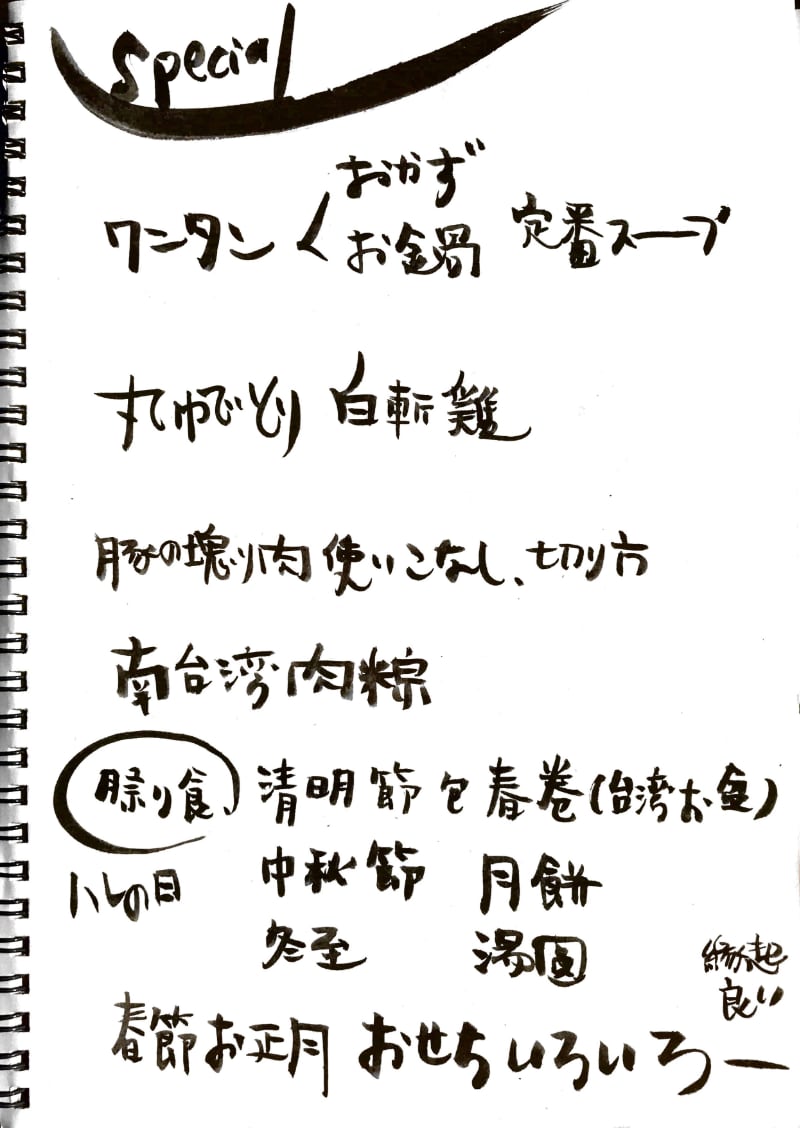 Special
おかず
ワンタン < お鍋 定番スープ
丸ゆでどり 白斬鶏
豚の塊り肉使いこなし、切り方
南台湾肉粽
祭り食、 清明節 包春巻(台湾お盆)
ハレの日 中秋節 月餅
冬至 湯圓
縁起
良い
春節お正月 おせちいろいろー